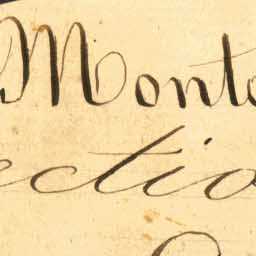 Monte
ectio